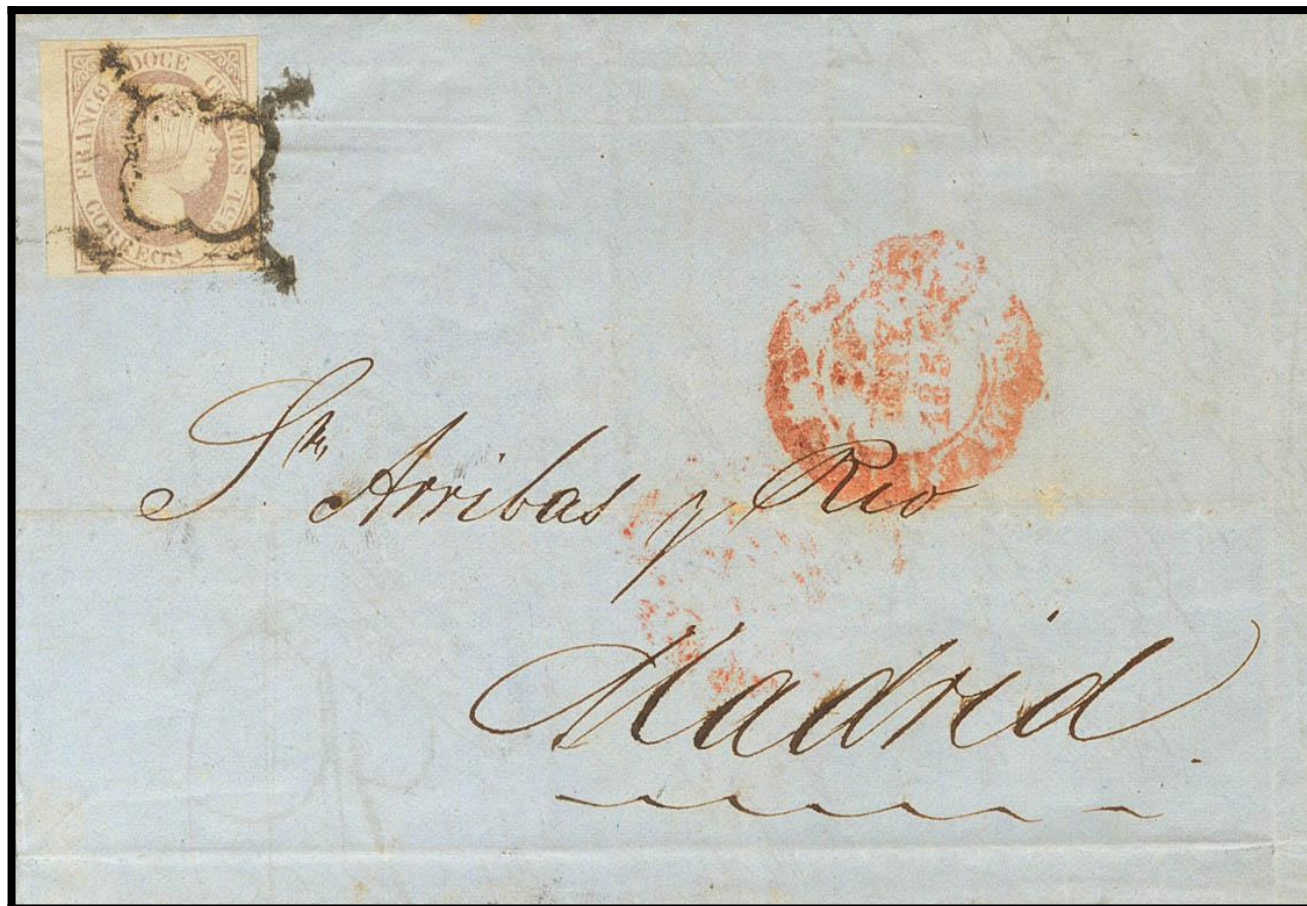 FRANCO DOCE CUARTOS 1851
CORREOS
MAY
185
Sres Arribas y Rio
Madrid.